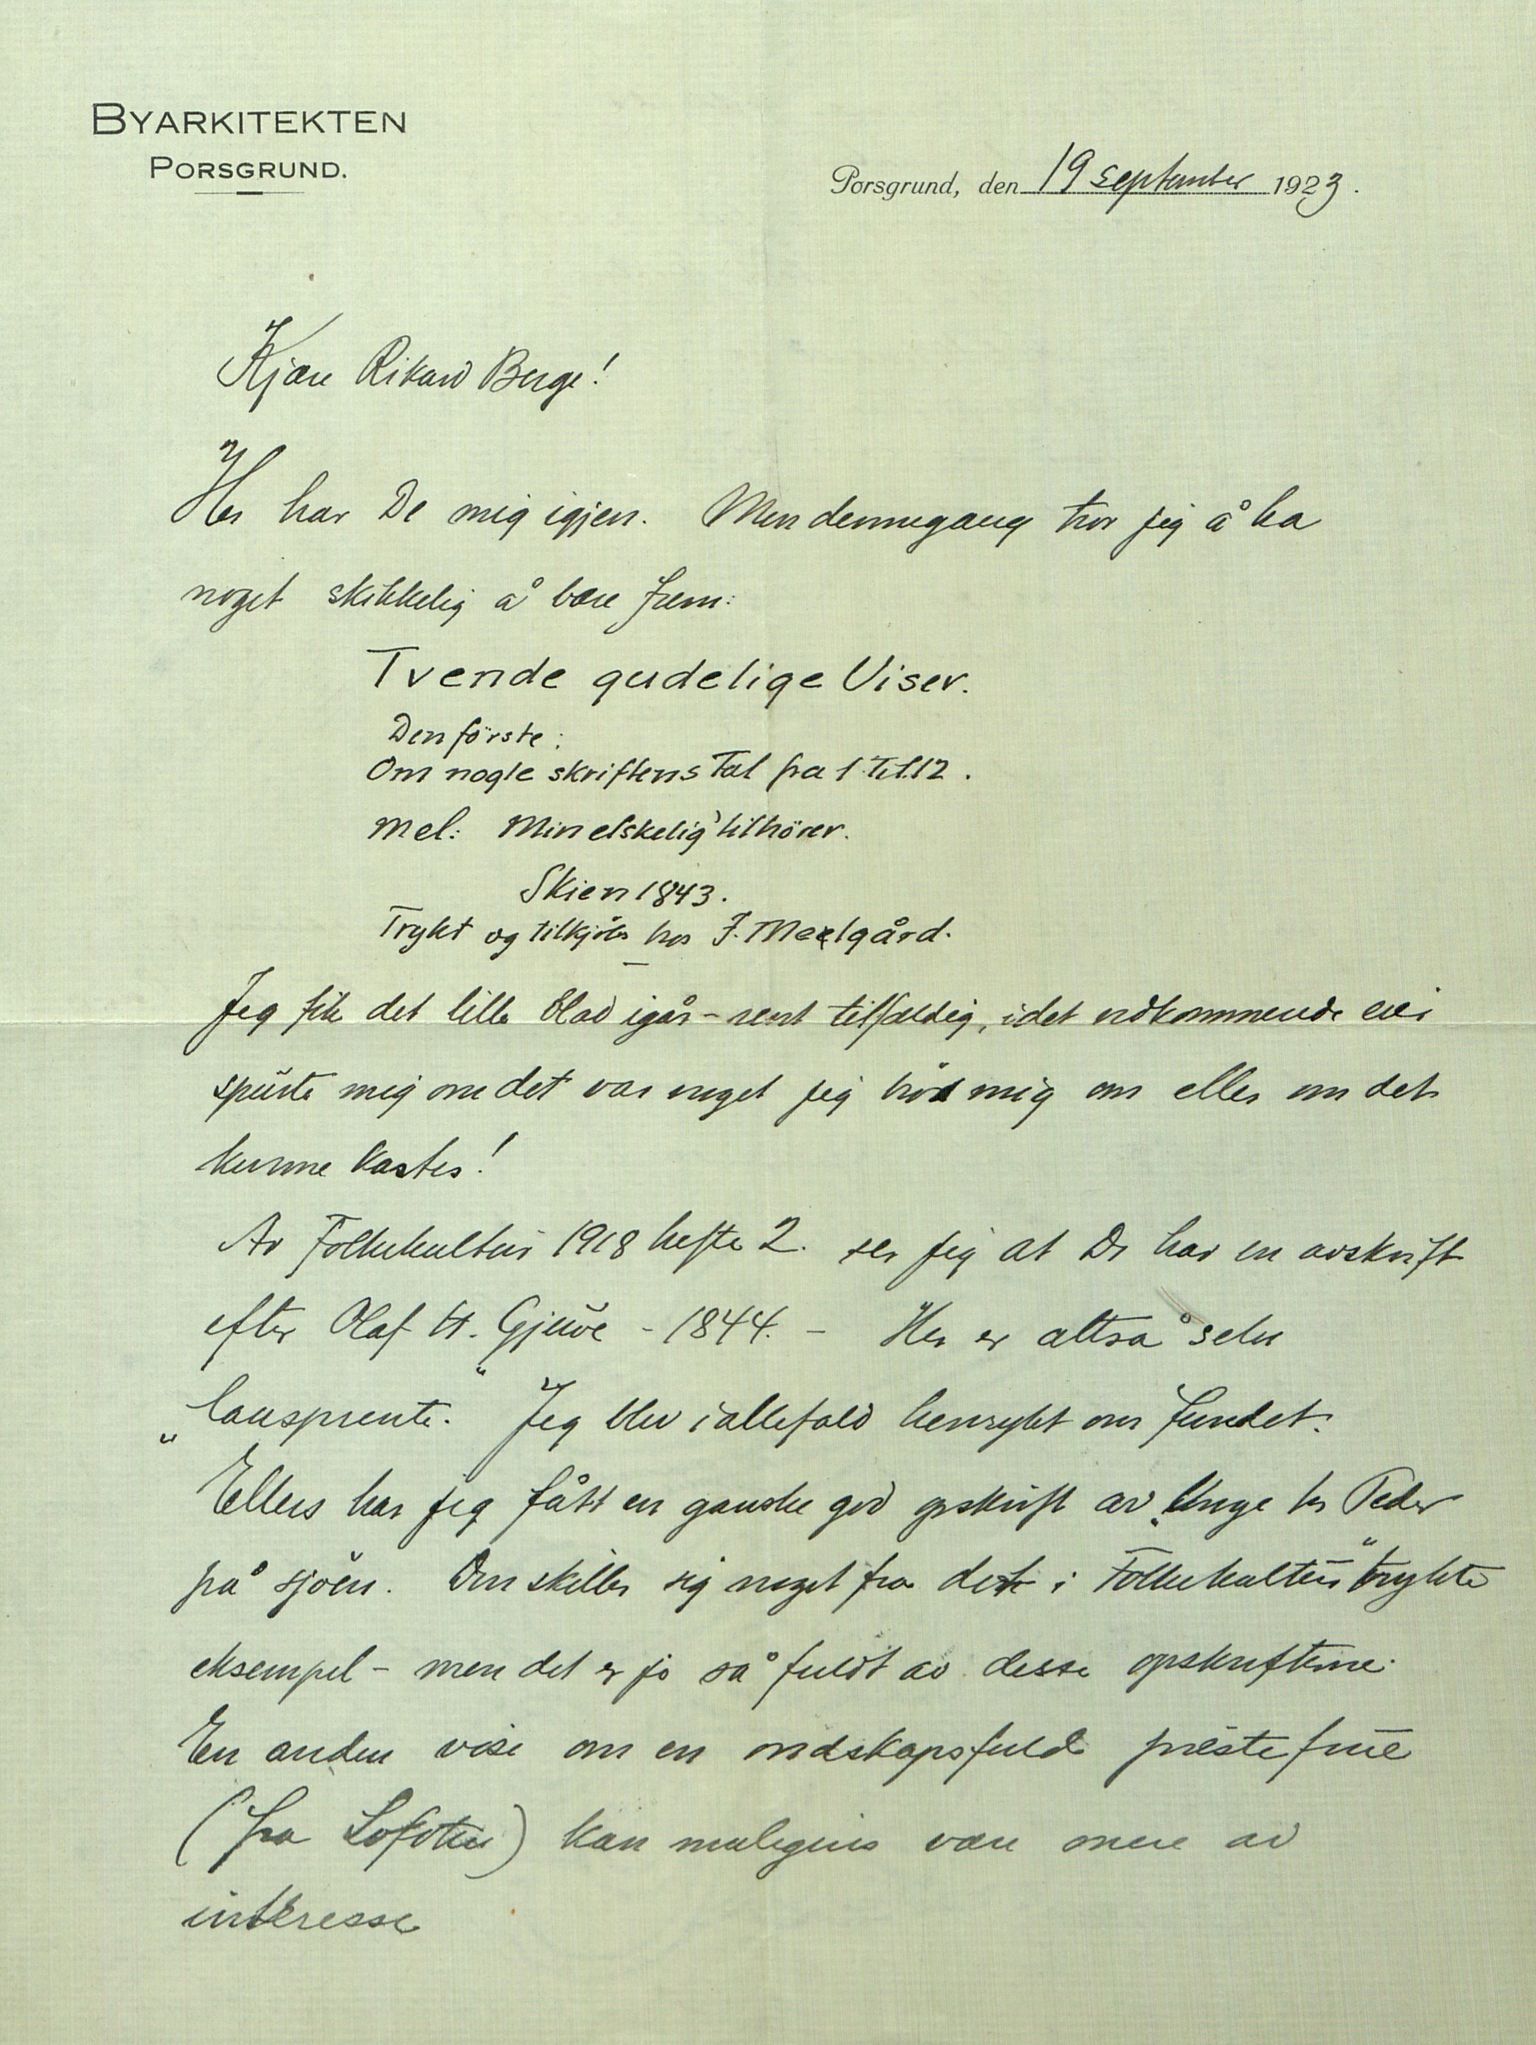 BYARKITEKTEN
PORSGRUND.
Porsgrund, den 19 september 1923.
Kjære Rikard Berge!
Her har De mig igjen. Men dennegang tror jeg å ha
noget skikkelig å bære frem:
Tvende gudelige Viser.
Den förste:
Om nogle skriftens Tal fra 1 til 12.
Mel: Min elskelig' tilhörer.
Skien 1843.
Trykt og tilkjöbs hos J. Melgård.
Jeg fik det lille blad igår - rent tilfældig, idet vedkommende eier
spurte mig om det var noget jeg brød mig om eller om det
kunne kastes!
Av Folkekultur 1918 hefte 2. ser jeg at De har en avskrift
efter Olaf H. Gjeūve - 1844. - Her er altså selve
"lausprente." Jeg blev iallefald henrykt om fundet.
Ellers har jeg fått en ganske god opskrift av "Unge hr Peder
på sjöen." Den skiller sig noget fra det i Folkekultur trykte
eksempel - men det er jo så fuldt av desse opskrifterne.
En anden vise om en ondskapsfuld prestefrue
(fra Lofoten) kan muligens være mere av
interesse